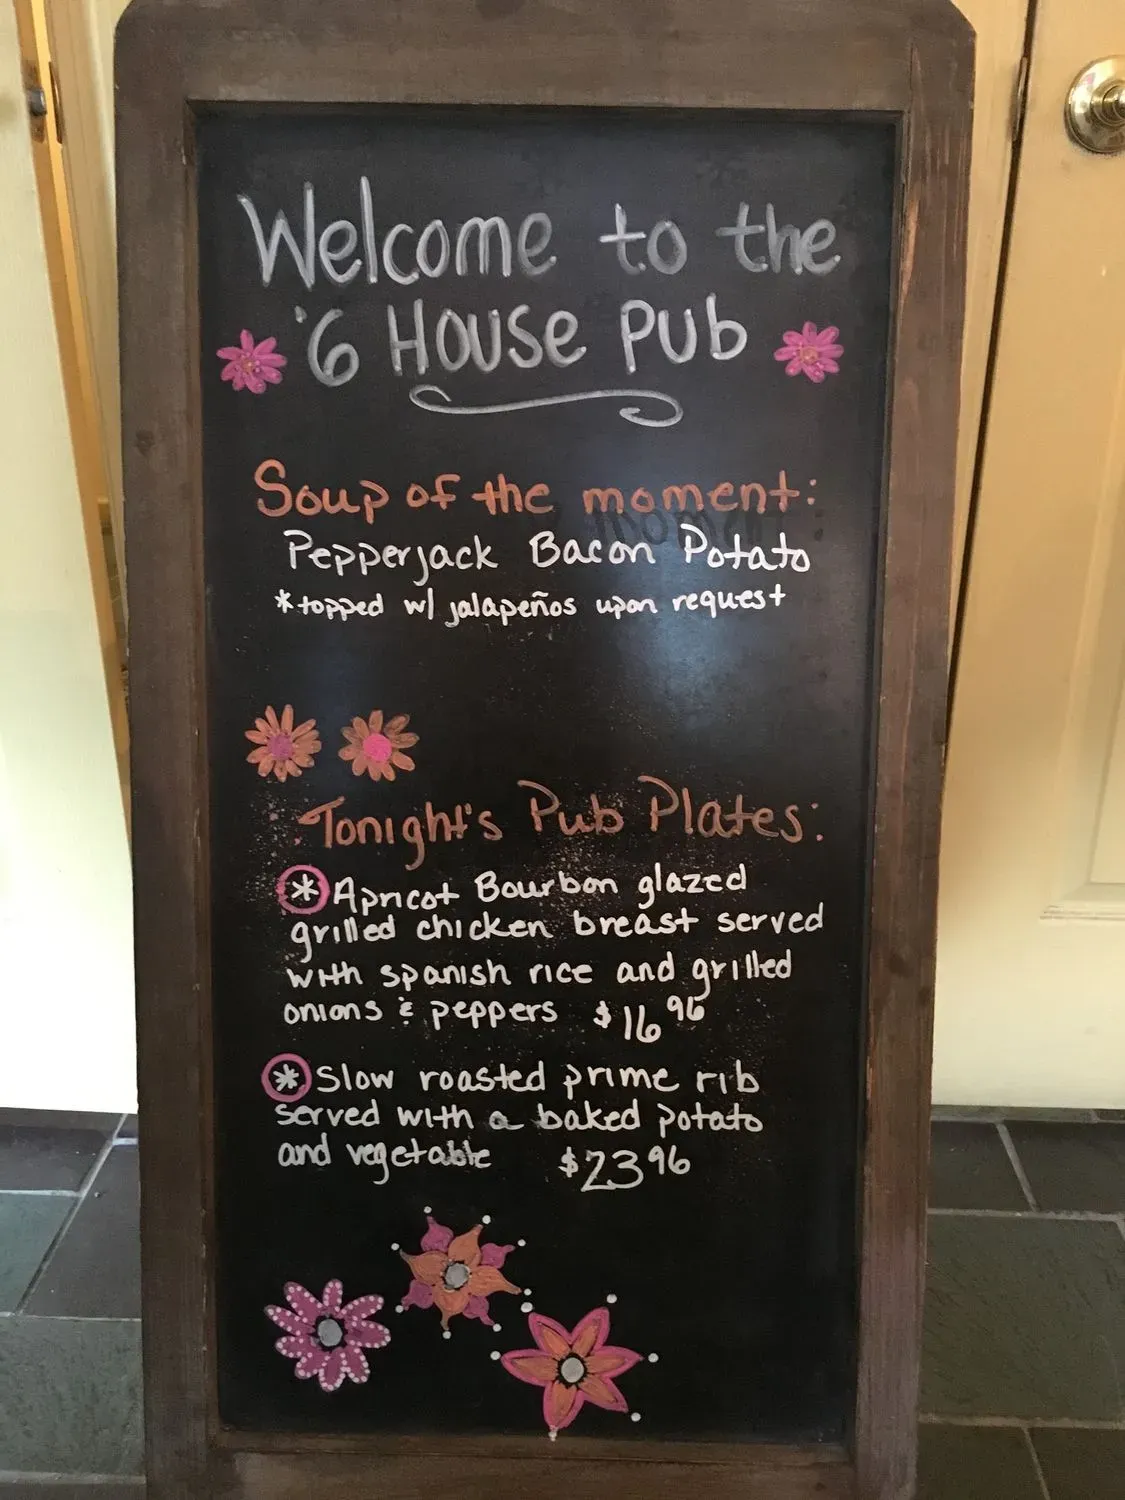 Welcome to the
'6 House Pub
Soup of the moment:
Pepperjack Bacon Potato
*topped w/ jalapeños upon request
Tonight's Pub Plates:
* Apricot Bourbon glazed
grilled chicken breast served
with spanish rice and grilled
onions & peppers $16 96
* Slow roasted prime rib
served with a baked potato
and vegetable $23 96